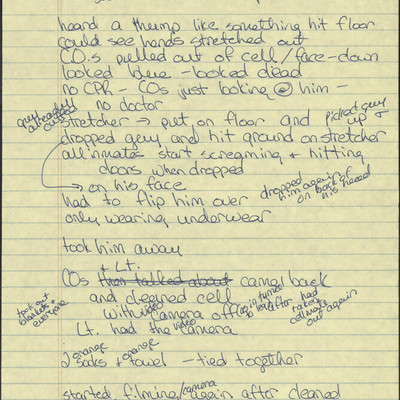 heard a thump like something hit floor
could see hands stretched out
COs pulled out of cell/face-down
looked blue - looked dead
no CPR - COs just looking @ him -
no doctor
guy already cuffed
stretcher → put on floor and picked guy up &
dropped guy and hit ground on stretcher
all inmates start screaming & hitting
doors when dropped
→ on his face
had to flip him over
dropped him again on back of his head
only wearing underwear
took him away
COs & Lt. then talked about came back
and cleaned cell
took out blankets & everyone
with video camera off
again after had taken
out again
Lt. had the video camera
2 orange socks & orange towel - tied together
started filming/camera again after cleaned